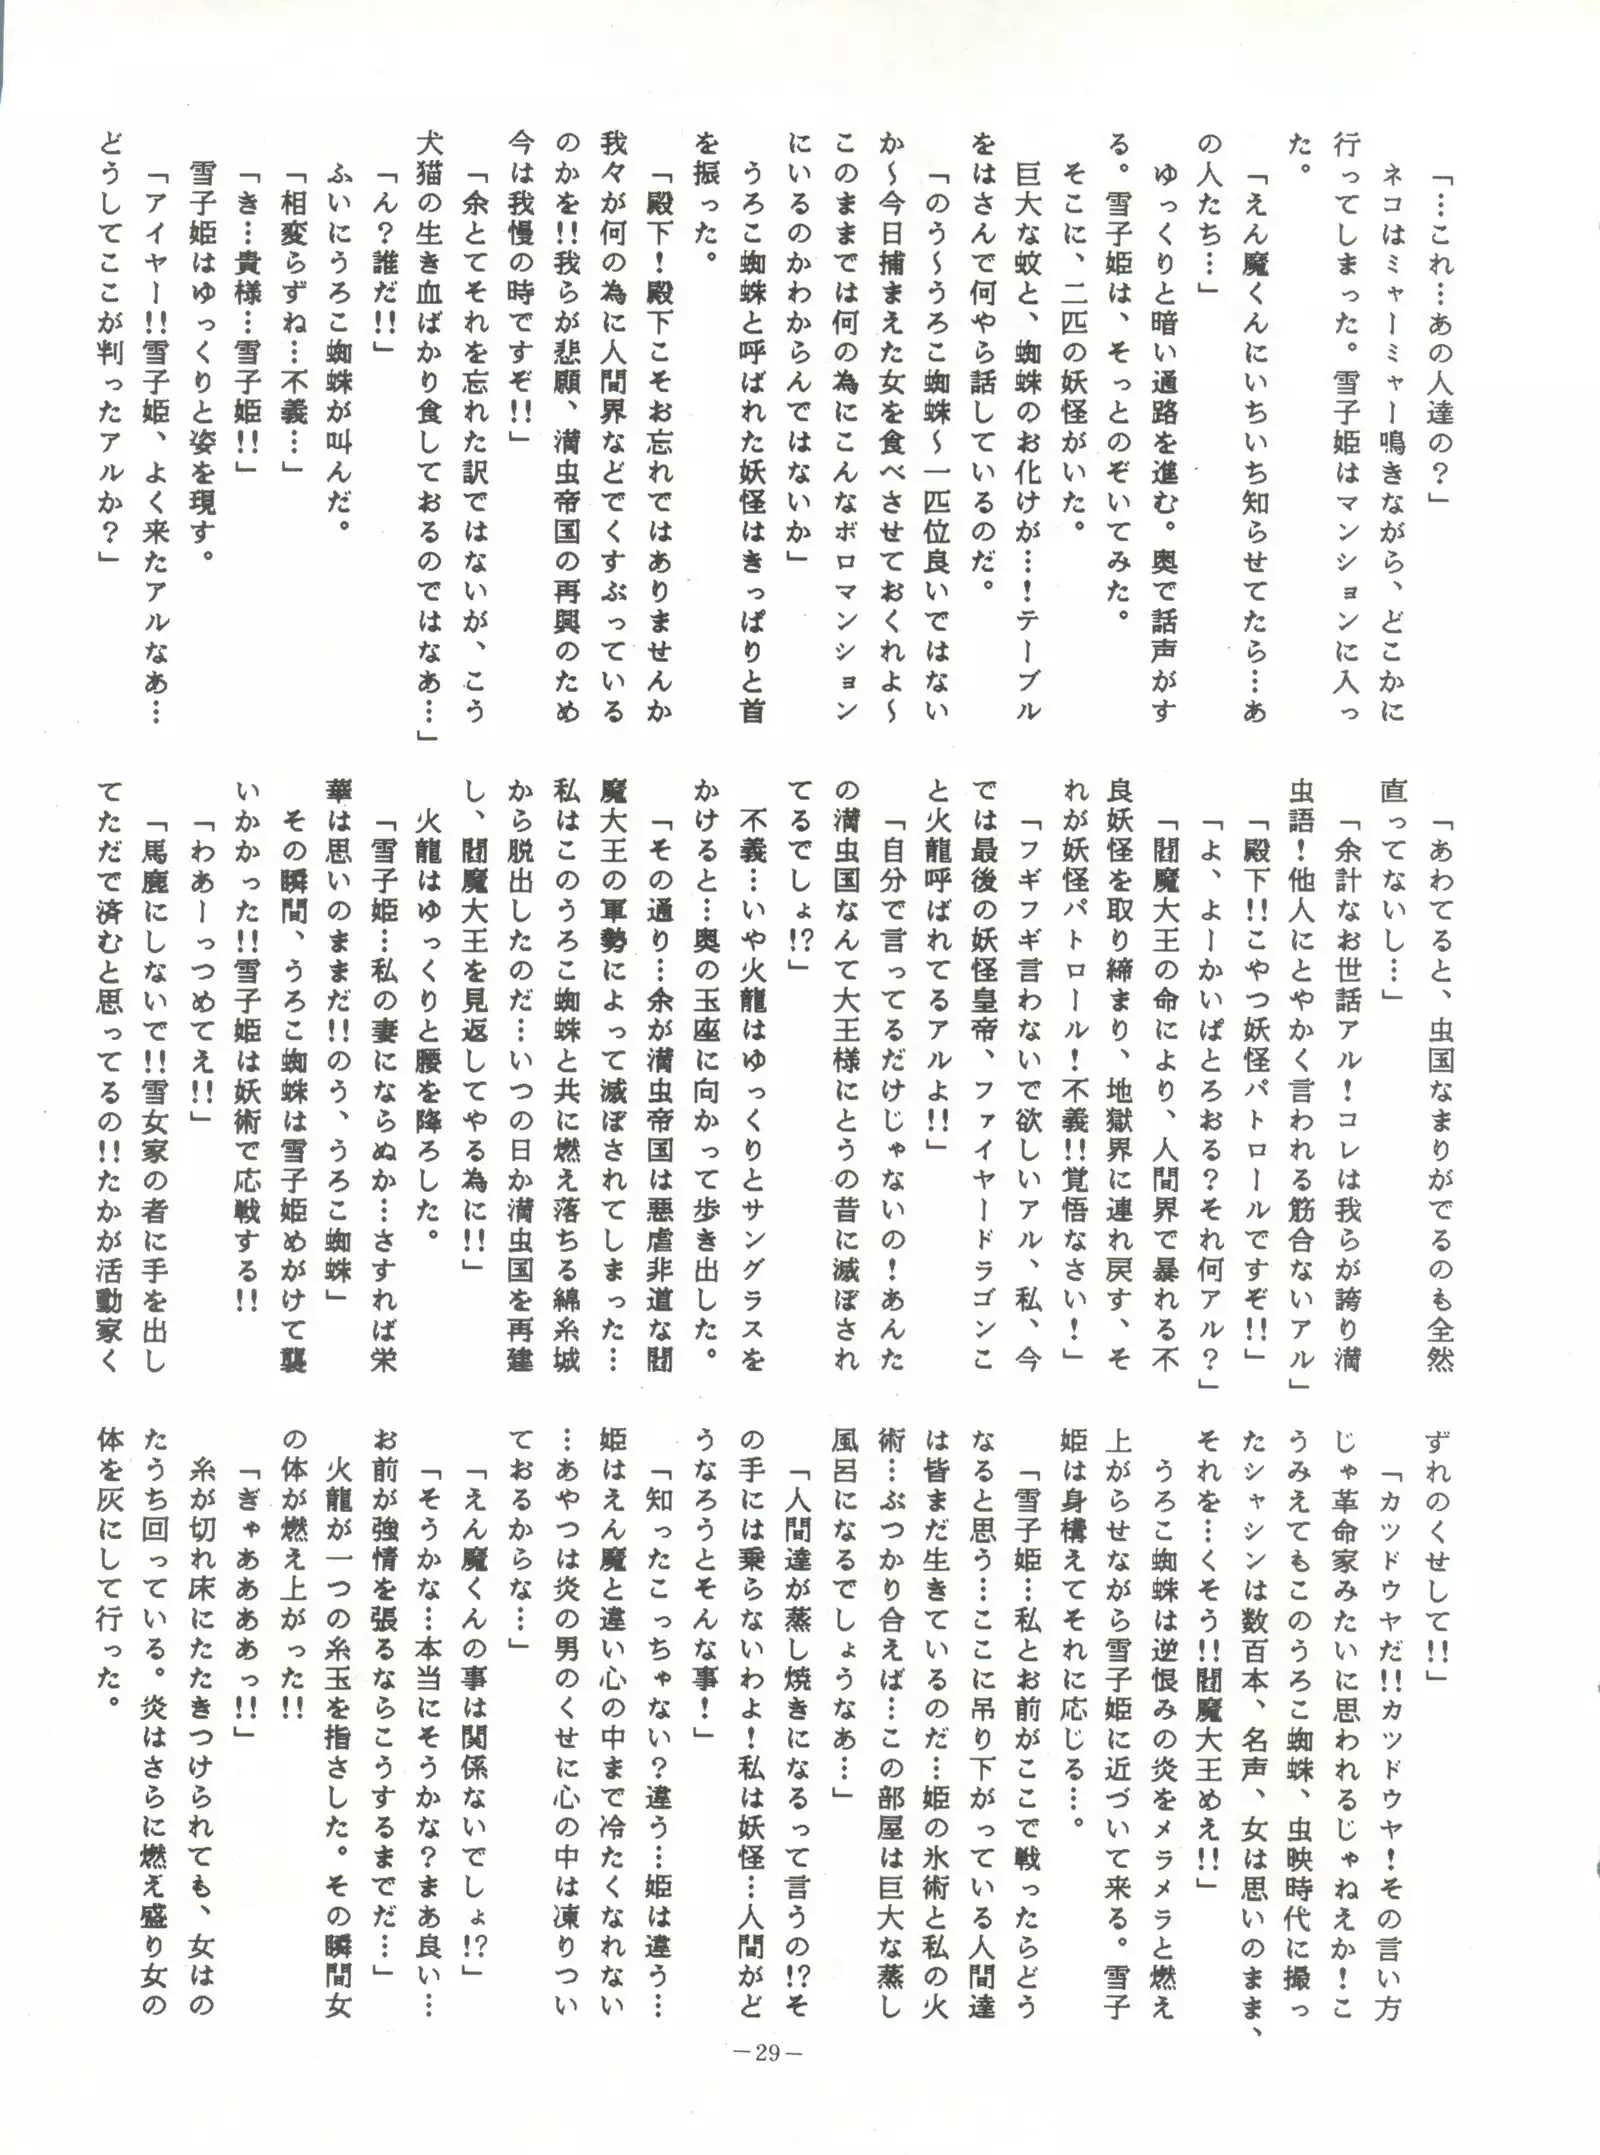 「…これ…あの人達の？」
ネコはミャーミャー鳴きながら、どこかに
行ってしまった。雪子姫はマンションに入っ
た。
「えん魔くんにいちいち知らせてたら…あ
の人たち…」
ゆっくりと暗い通路を進む。奥で話声がす
る。雪子姫は、そっとのぞいてみた。
そこに、二匹の妖怪がいた。
巨大な蚊と、蜘蛛のお化けが…！テーブル
をはさんで何やら話しているのだ。
「のう～うろこ蜘蛛～一匹位良いではない
か～今日捕まえた女を食べさせておくれよ～
このままでは何の為にこんなボロマンション
にいるのかわからんではないか」
うろこ蜘蛛と呼ばれた妖怪はきっぱりと首
を振った。
「殿下！殿下こそお忘れではありませんか
我々が何の為に人間界などでくすぶっている
のかを!!我らが悲願、満虫帝国の再興のため
今は我慢の時ですぞ!!」
「余とてそれを忘れた訳ではないが、こう
犬猫の生き血ばかり食しておるのではなあ…」
「ん？誰だ!!」
ふいにうろこ蜘蛛が叫んだ。
「相変らずね…不義…」
「き…貴様…雪子姫!!」
雪子姫はゆっくりと姿を現す。
「アイヤー!!雪子姫、よく来たアルなあ…
どうしてここが判ったアルか？」
「あわてると、虫国なまりがでるのも全然
直ってないし…」
「余計なお世話アル！コレは我らが誇り満
虫語！他人にとやかく言われる筋合ないアル」
「殿下!!こやつ妖怪パトロールですぞ!!」
「よ、よーかいぱとろおる？それ何アル？」
「閻魔大王の命により、人間界で暴れる不
良妖怪を取り締まり、地獄界に連れ戻す、そ
れが妖怪パトロール！不義!!覚悟なさい！」
「フギフギ言わないで欲しいアル、私、今
では最後の妖怪皇帝、ファイヤードラゴンこ
と火龍呼ばれてるアルよ!!」
「自分で言ってるだけじゃないの！あんた
の満虫国なんて大王様にとうの昔に滅ぼされ
てるでしょ!?」
不義…いや火龍はゆっくりとサングラスを
かけると…奥の玉座に向かって歩き出した。
「その通り…余が満虫帝国は悪虐非道な閻
魔大王の軍勢によって滅ぼされてしまった…
私はこのうろこ蜘蛛と共に燃え落ちる綿糸城
から脱出したのだ…いつの日か満虫国を再建
し、閻魔大王を見返してやる為に!!」
火龍はゆっくりと腰を降ろした。
「雪子姫…私の妻にならぬか…さすれば栄
華は思いのままだ!!のう、うろこ蜘蛛」
その瞬間、うろこ蜘蛛は雪子姫めがけて襲
いかかった!!雪子姫は妖術で応戦する!!
「わあーっつめてえ!!」
「馬鹿にしないで!!雪女家の者に手を出し
てただで済むと思ってるの!!たかが活動家く
ずれのくせして!!」
「カッドウヤだ!!カツドウヤ！その言い方
じゃ革命家みたいに思われるじゃねえか！こ
うみえてもこのうろこ蜘蛛、虫映時代に撮っ
たシャシンは数百本、名声、女は思いのまま、
それを…くそう!!閻魔大王めえ!!」
うろこ蜘蛛は逆恨みの炎をメラメラと燃え
上がらせながら雪子姫に近づいて来る。雪子
姫は身構えてそれに応じる…。
「雪子姫…私とお前がここで戦ったらどう
なると思う…ここに吊り下がっている人間達
は皆まだ生きているのだ…姫の氷術と私の火
術…ぶつかり合えば…この部屋は巨大な蒸し
風呂になるでしょうなあ…」
「人間達が蒸し焼きになるって言うの!?そ
の手には乗らないわよ！私は妖怪…人間がど
うなろうとそんな事！」
「知ったこっちゃない？違う…姫は違う…
姫はえん魔と違い心の中まで冷たくなれない
…あやつは炎の男のくせに心の中は凍りつい
ておるからな…」
「えん魔くんの事は関係ないでしょ!?」
「そうかな…本当にそうかな？まあ良い…
お前が強情を張るならこうするまでだ…」
火龍が一つの糸玉を指さした。その瞬間女
の体が燃え上がった!!
「ぎゃああああっ!!」
糸が切れ床にたたきつけられても、女はの
たうち回っている。炎はさらに燃え盛り女の
体を灰にして行った。
－29－